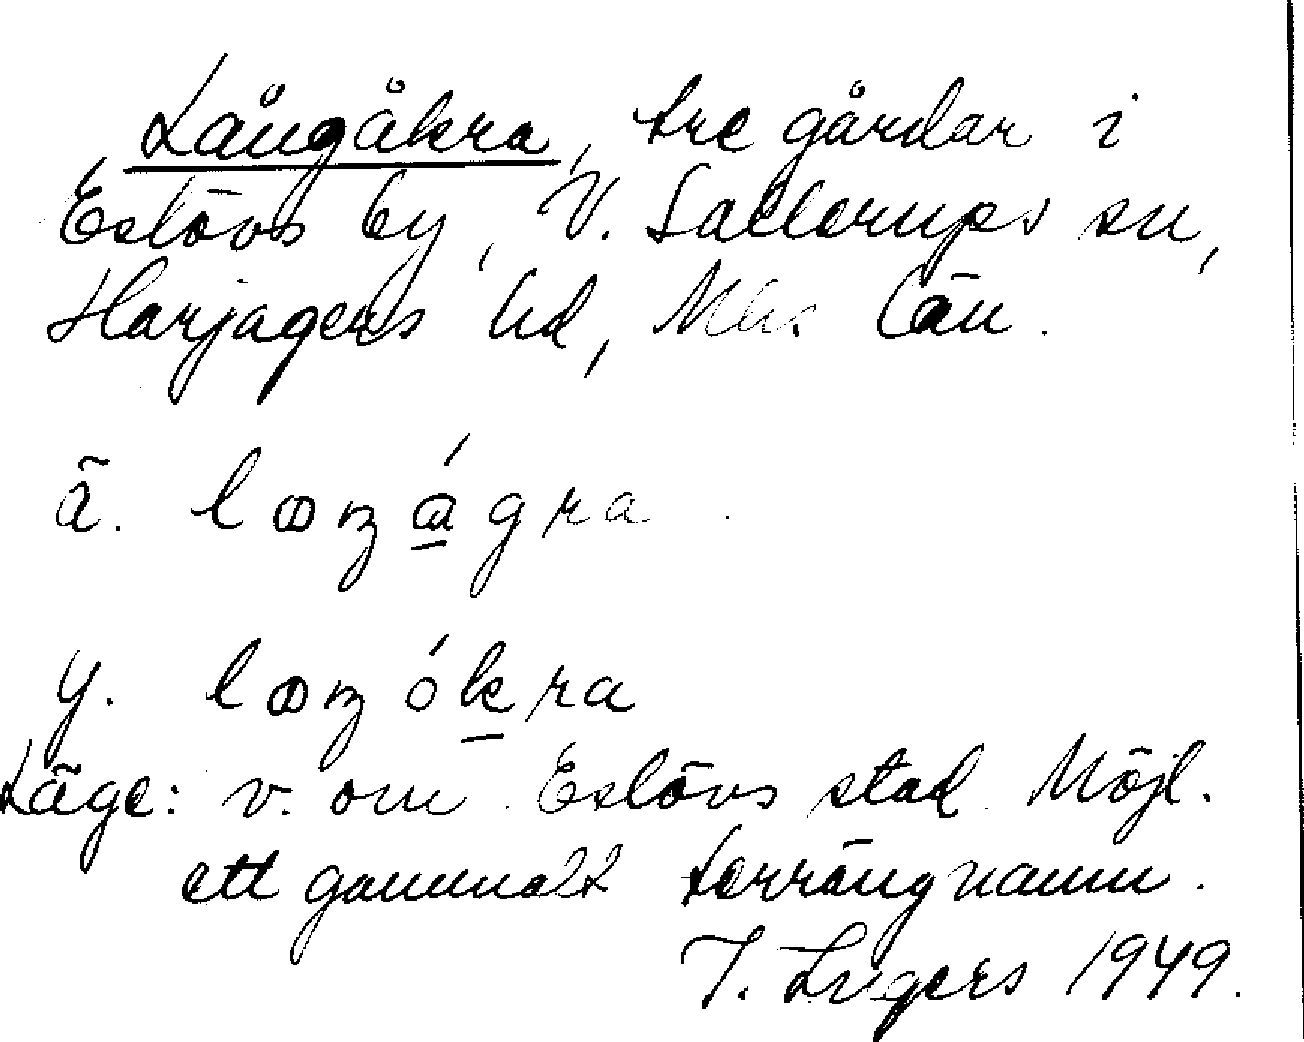 Långåkra, tre gårdar i
Eslövs by, V. Sallerups sn,
Harjagers hd, Mlh. län.
ä. lꝏŋágra
y. lꝏŋókra
Läge: v. om Eslövs stad. Möjl.
ett gammalt terrängnamn.
I. Ingers 1949.